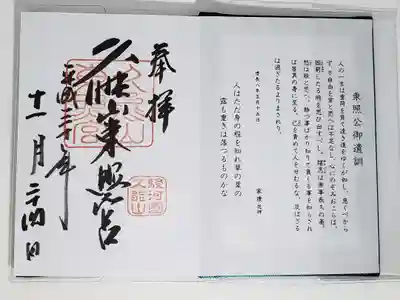 東照公御遺訓
人の一生は重荷を負て遠き道をゆくが如し、急ぐべから
ず、不自由を常と思へば不足なし、心にのぞみおこらば、
困窮したる時を思ひ出すべし、堪忍は無事長久の基、
怒は敵と思へ、勝つ事ばかり知りて負くる事を知らざれ
ば害其の身に至る、己を責めて人を責むるな、及ばざる
は過ぎたるよりまされり。
慶長八年正月十五日
家康
人はただ身の程を知れ草の葉の
露も重きは落つるものかな
奉拝
久能山東照宮
駿河國
久能山
平成三十年
十一月二十四日